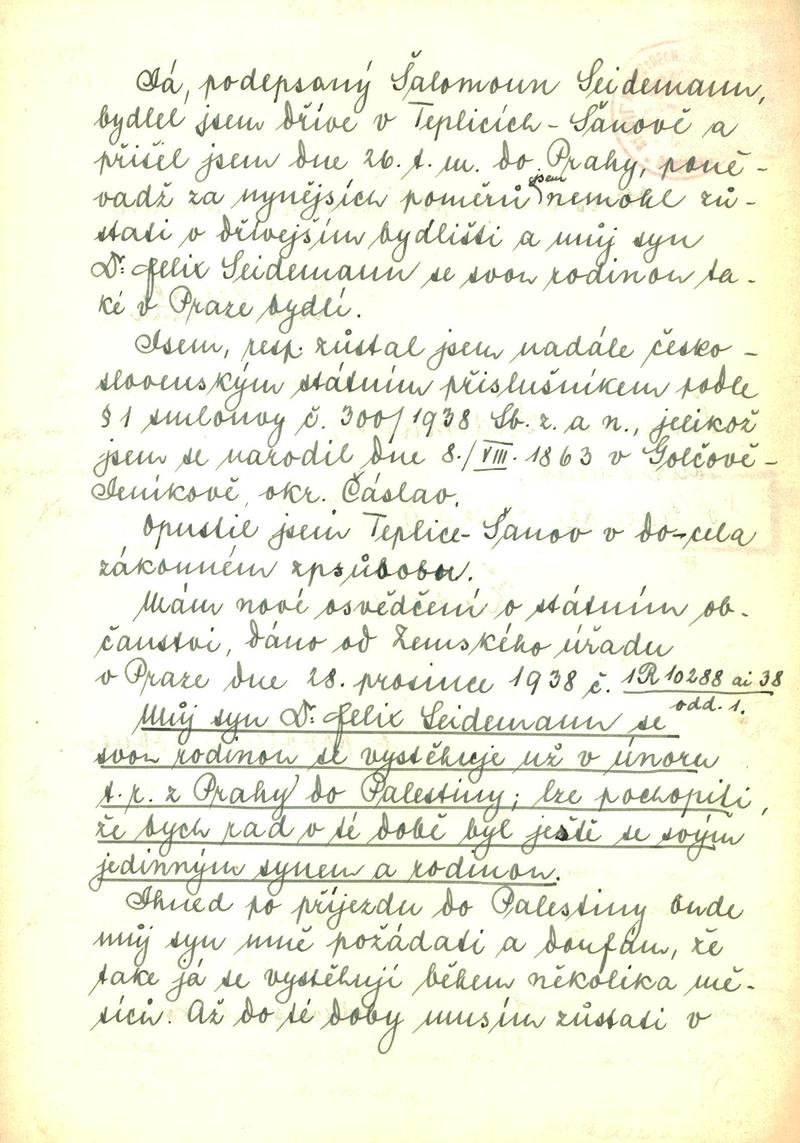 Já, podepsaný Šalomoun Seidemann,
bydlel jsem dříve v Teplicích - Šanově a
přišel jsem dne 26. t. m. do Prahy, poně-
vadž za nynějsích poměrů jsem nemohl zů-
stati v dřívejším bydlišti a můj syn
Dr. Felix Seidemann se svou rodinou ta-
ké v Praze bydlí.
Jsem, resp. zůstal jsem nadále česko-
slovenským státním přislušníkem podle
§ 1 smlouvy č. 300/1938 Sb. z. a n., jelikož
jsem se narodil dne 8./VIII. 1863 v Golčově-
Jeníkově, okr. Čáslav.
Opustil jsem Teplice-Šanov v do-cela
zákonném způsobou.
Mám nové osvědčení o státním ob-
čanstvi, dáno od Zemského úřadu
v Praze dne 28. prosince 1938 č. 1R 10288 ai 38
odd. 1.
Můj syn Dr. Felix Seidemann se
svou rodinou se vystěhuje už v únoru
t. r. z Prahy do Palestiny; lze pochopiti,
že bych rad v té době byl ještě se svým
jedinným synem a rodinou.
Ihned po příjezdu do Palestiny bude
můj syn mně požádati a doufám, že
take já se vystěhují během několika mě-
síců. Až do té doby musím zůstati v